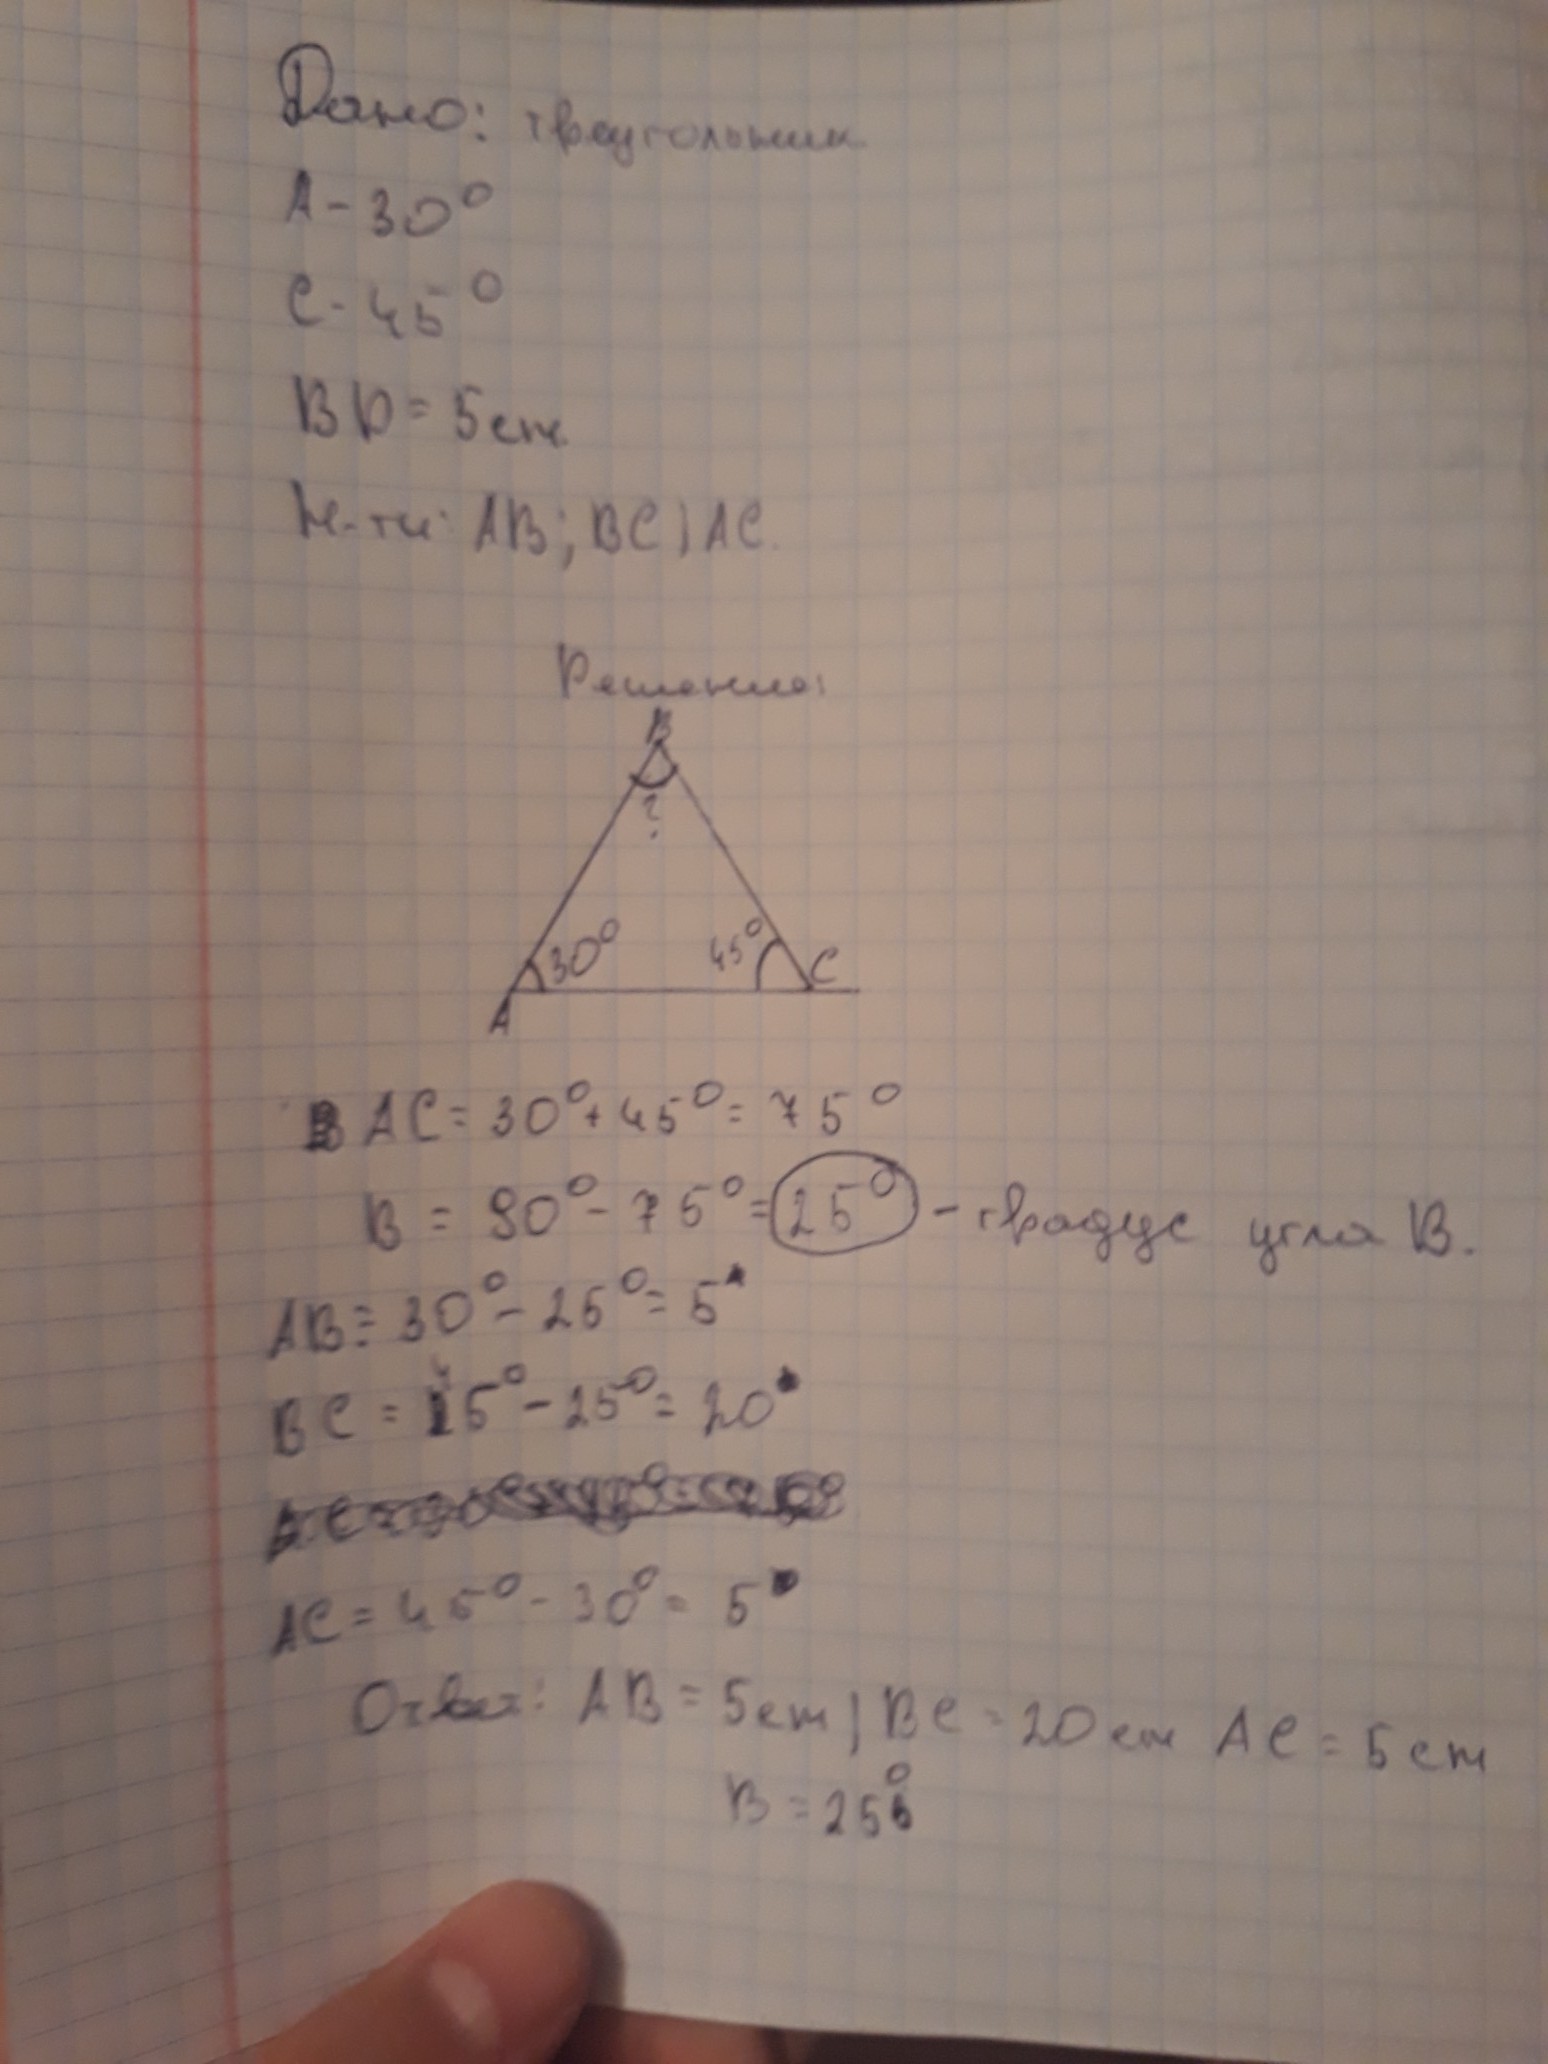 Дано: треугольник
A - 30°
C - 45°
BD = 5см.
Н-ти: AB; BC; AC.
Решение:
B
?
30° 45° C
A
B AC = 30° + 45° = 75°
B = 90° - 75° = 25° - градус угла B.
AB = 30° - 25° = 5
BC = 45° - 25° = 20
AC = 45° - 30° = 5
Ответ: AB = 5см; BC = 20см AC = 5см
B = 25°